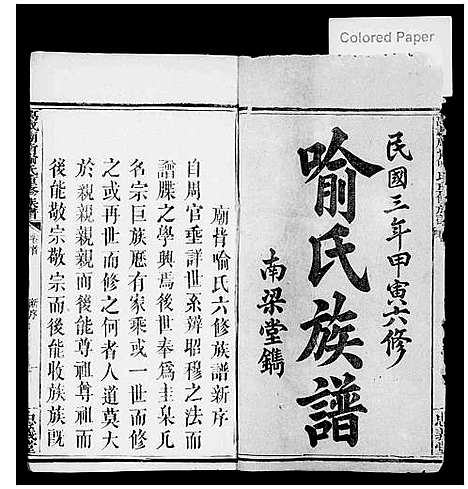 Colored Paper
民國三年甲寅六修
喻氏族譜
南梁堂鐫
廟背喻氏六修族譜新序
自周官垂詳世系辨昭穆之法而
譜牒之學興焉後世奉爲圭臬凡
名宗巨族歷有家乘或一世而修
之或再世而修之何者人道莫大
於親親親親而後能尊祖尊祖而
後能敬宗敬宗而後能收族族既
卷首
新序
忠義堂
忠義堂